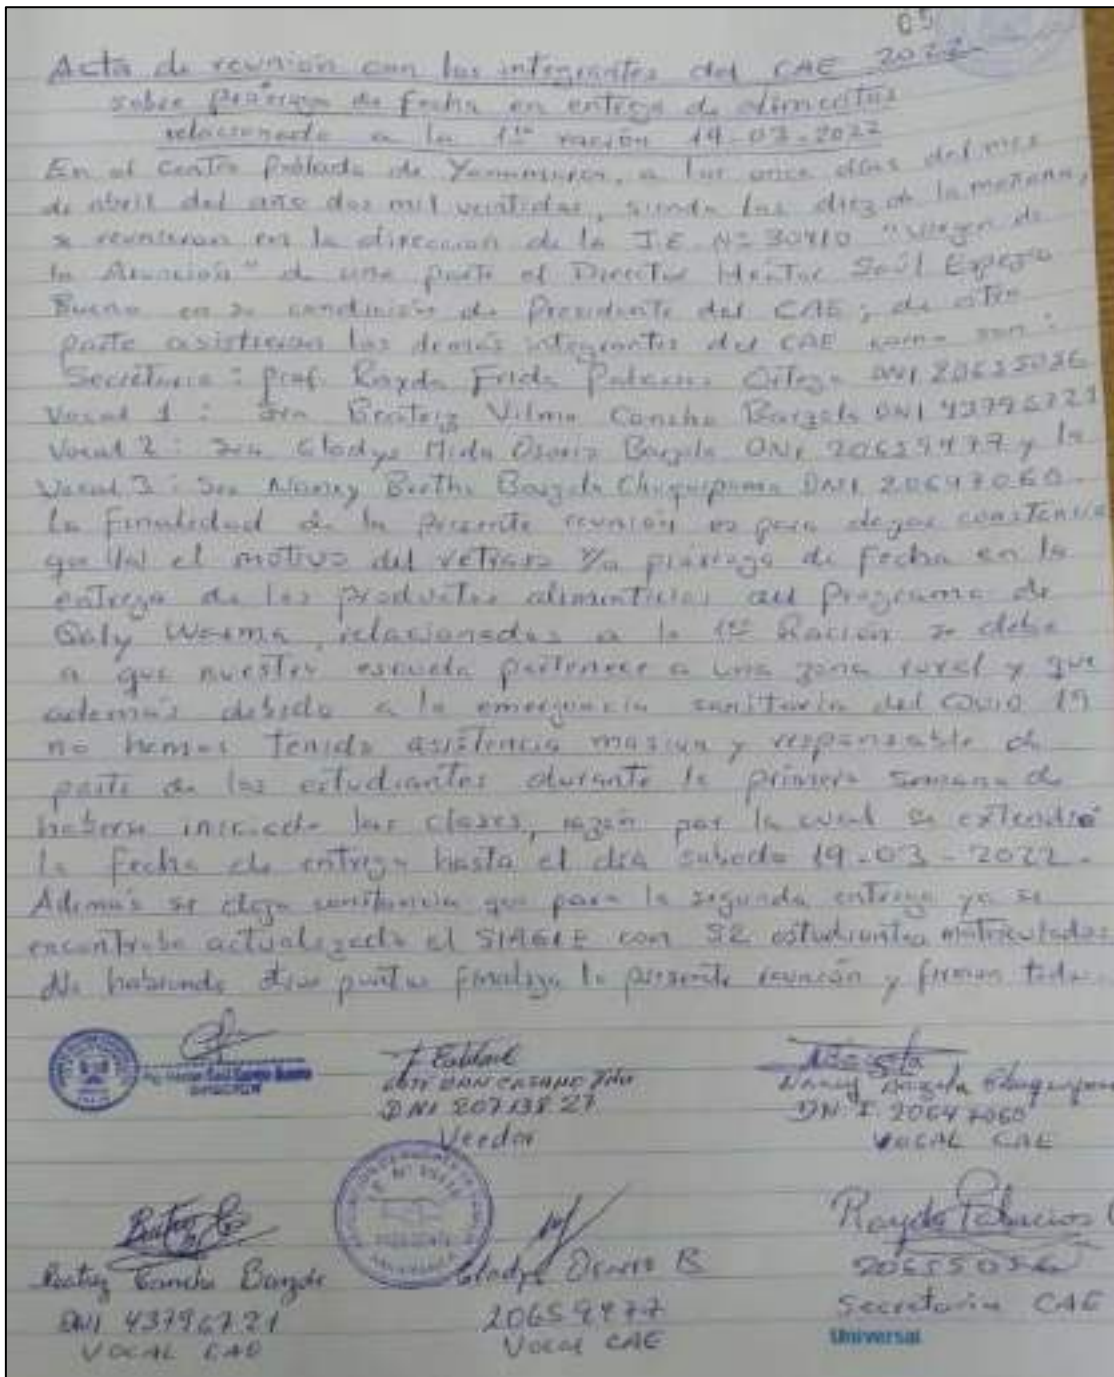 05
Acta de reunión con los integrantes del CAE 2022
sobre prórroga de fecha en entrega de alimentos
relacionado a la 1ra ración 19-03-2022
En el centro poblado de, a los once días del mes
de abril del año dos mil veintidos, siendo las diez de la mañana,
se reunieron en la dirección de la I.E. Nº 30410 "Virgen de
la Asunción" de una parte el Director Héctor Saúl Espejo
Bueno en su condición de Presidente del CAE; de otra
parte asistieron los demás integrantes del CAE como son:
Secretaria: prof. Rayda Frida Palacios Ortega DNI 20655026
Vocal 1: Sra Beatriz Vilma Concha Barzola DNI 43796721
Vocal 2: Sra Gladys Osorio Barzola DNI 20659477 y la
Vocal 3: Sra Nancy Bertha Barzola Chuquipoma DNI 20647060.
La finalidad de la presente reunión es para dejar constancia
que el motivo del retraso y/o prórroga de fecha en la
entrega de los productos alimenticios del programa de
Qaly Warma, relacionados a la 1ra Ración se debe
a que nuestra escuela pertenece a una zona rural y que
además debido a la emergencia sanitaria del COVID 19
no hemos tenido asistencia masiva y responsable de
parte de los estudiantes durante la primera semana de
haberse iniciado las clases, razón por la cual se extendió
la fecha de entrega hasta el día sabado 19-03-2022.
Además se deja constancia que para la segunda entrega ya se
encontraba actualizado el SIAGIE con 52 estudiantes matriculados
No habiendo otros puntos finaliza la presente reunión y firman todos.
DIRECTOR
DNI 20713827
Veedor
Nancy Barzola Chuquipoma
DN.I. 20647060
VOCAL CAE
PRESIDENTE
Beatriz Concha Barzola
DNI 43796721
VOCAL CAE
Gladys Osorio B
20659477
Vocal CAE
Rayda Palacios O
20655026
Secretaria CAE
Universal